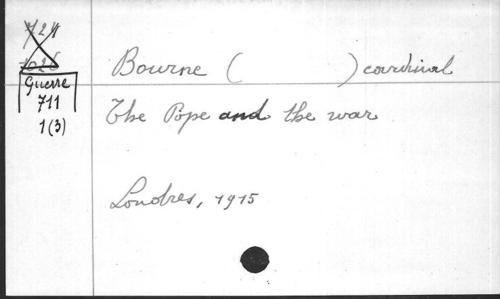 Guerre
711
1(3)
Bourne ( ) cardinal
The Pope and the war
Londres, 1915